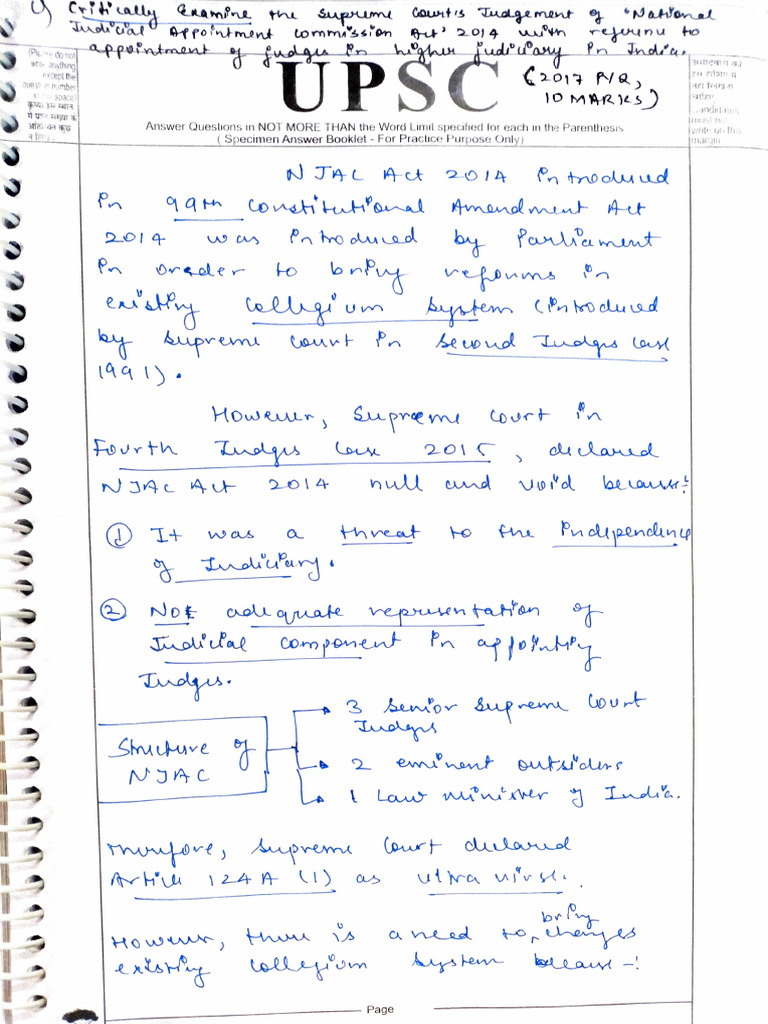 1) Critically Examine the Supreme Court's Judgement of 'National
Judicial Appointment Commission Act' 2014 with reference to
appointment of judges in higher judiciary in India.
(2017 PYQ,
10 MARKS)
(Please do not
write anything
except the
question number
space)
UPSC
Answer Questions in NOT MORE THAN the Word Limit specified for each in the Parenthesis
( Specimen Answer Booklet - For Practice Purpose Only)
must not
write on this
margin
NJAC Act 2014 introduced
in 99th Constitutional Amendment Act
2014 was introduced by Parliament
in order to bring reforms in
existing collegium system (introduced
by Supreme Court in Second Judges Case
1991).
However, Supreme Court in
Fourth Judges Case 2015, declared
NJAC Act 2014 null and void because:-
① It was a threat to the independence
of Judiciary.
② Not adequate representation of
Judicial component in appointing
Judges.
Structure of
NJAC
3 Senior Supreme Court
Judges
2 eminent outsiders
1 Law minister of India.
Therefore, Supreme Court declared
Article 124A (1) as ultra virse.
However, there is a need to bring changes
existing collegium system because -:
Page